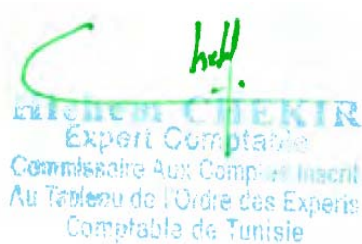 CHEKIR
Expert Comptable
Commissaire Aux Comptes Inscrit
Au Tableau de l'Ordre des Experts
Comptable de Tunisie